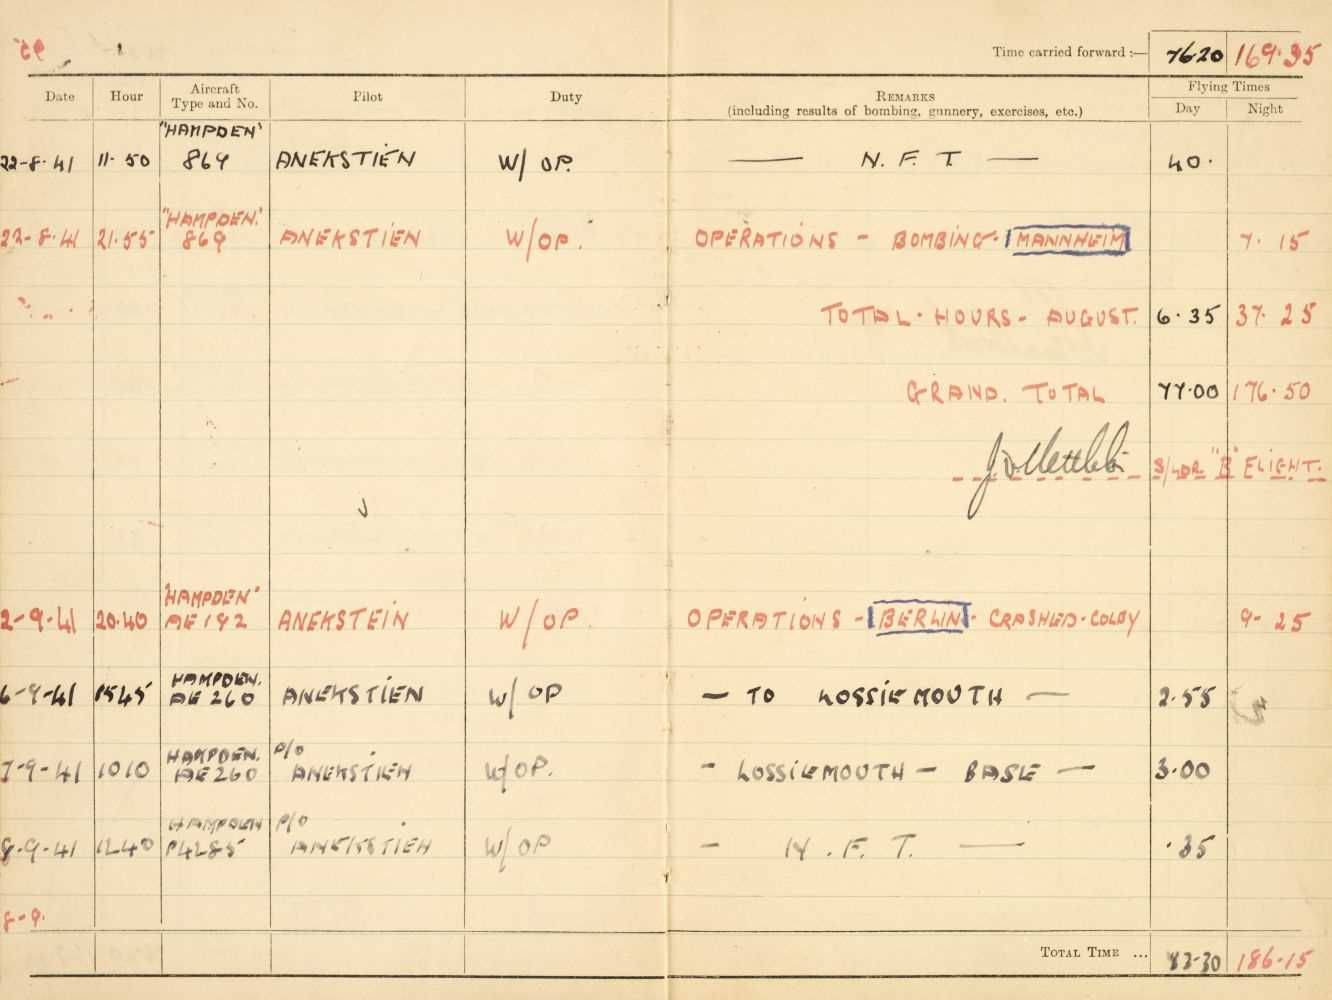 Time carried forward :— 76.20 169.35
Date Hour Aircraft Type and No. Pilot Duty REMARKS (including results of bombing, gunnery, exercises, etc.) Flying Times Day Night
"HAMPDEN"
22-8-41 11.50 869 ANEKSTIEN W/OP. — N.F.T — 40.
"HAMPDEN."
22-8-41 21.55 869 ANEKSTIEN W/OP. OPERATIONS - BOMBING. MANNHEIM 7.15
TOTAL. HOURS - AUGUST. 6.35 37.25
GRAND. TOTAL 77.00 176.50
S/LDR "B" FLIGHT.
"HAMPDEN"
2-9-41 20.40 AE192 ANEKSTEIN W/OP. OPERATIONS - BERLIN. CRASHED-COLBY 9-25
HAMPDEN.
6-9-41 1545 AE260 ANEKSTIEN W/OP — TO LOSSIEMOUTH — 2.55
HAMPDEN. P/O
7-9-41 1010 AE260 ANEKSTIEN W/OP. - LOSSIEMOUTH — BASE — 3.00
HAMPDEN P/O
8-9-41 1240 P4285 ANEKSTIEN W/OP — N.F.T. — .35
8-9.
TOTAL TIME ... 83-30 186-15